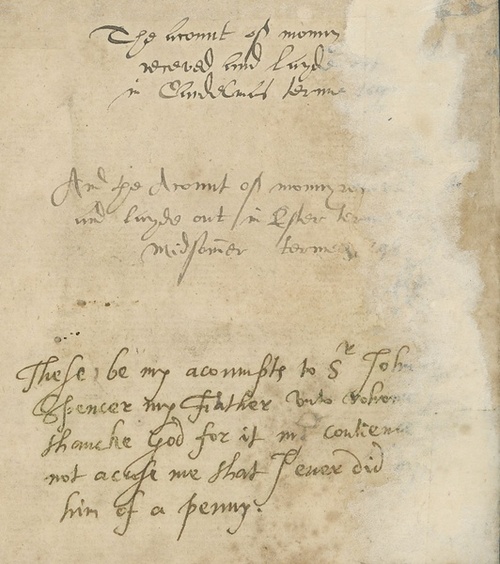 The acount of monny
receved and layde
in Candelmas terme
And the Acount of monny
and layde out in Ester ter
midsomer terme
These be my acoumpts to Sr John
Spencer my Father unto whom
thancke God for it my contien
not acuse me that I ever did
him of a penny.